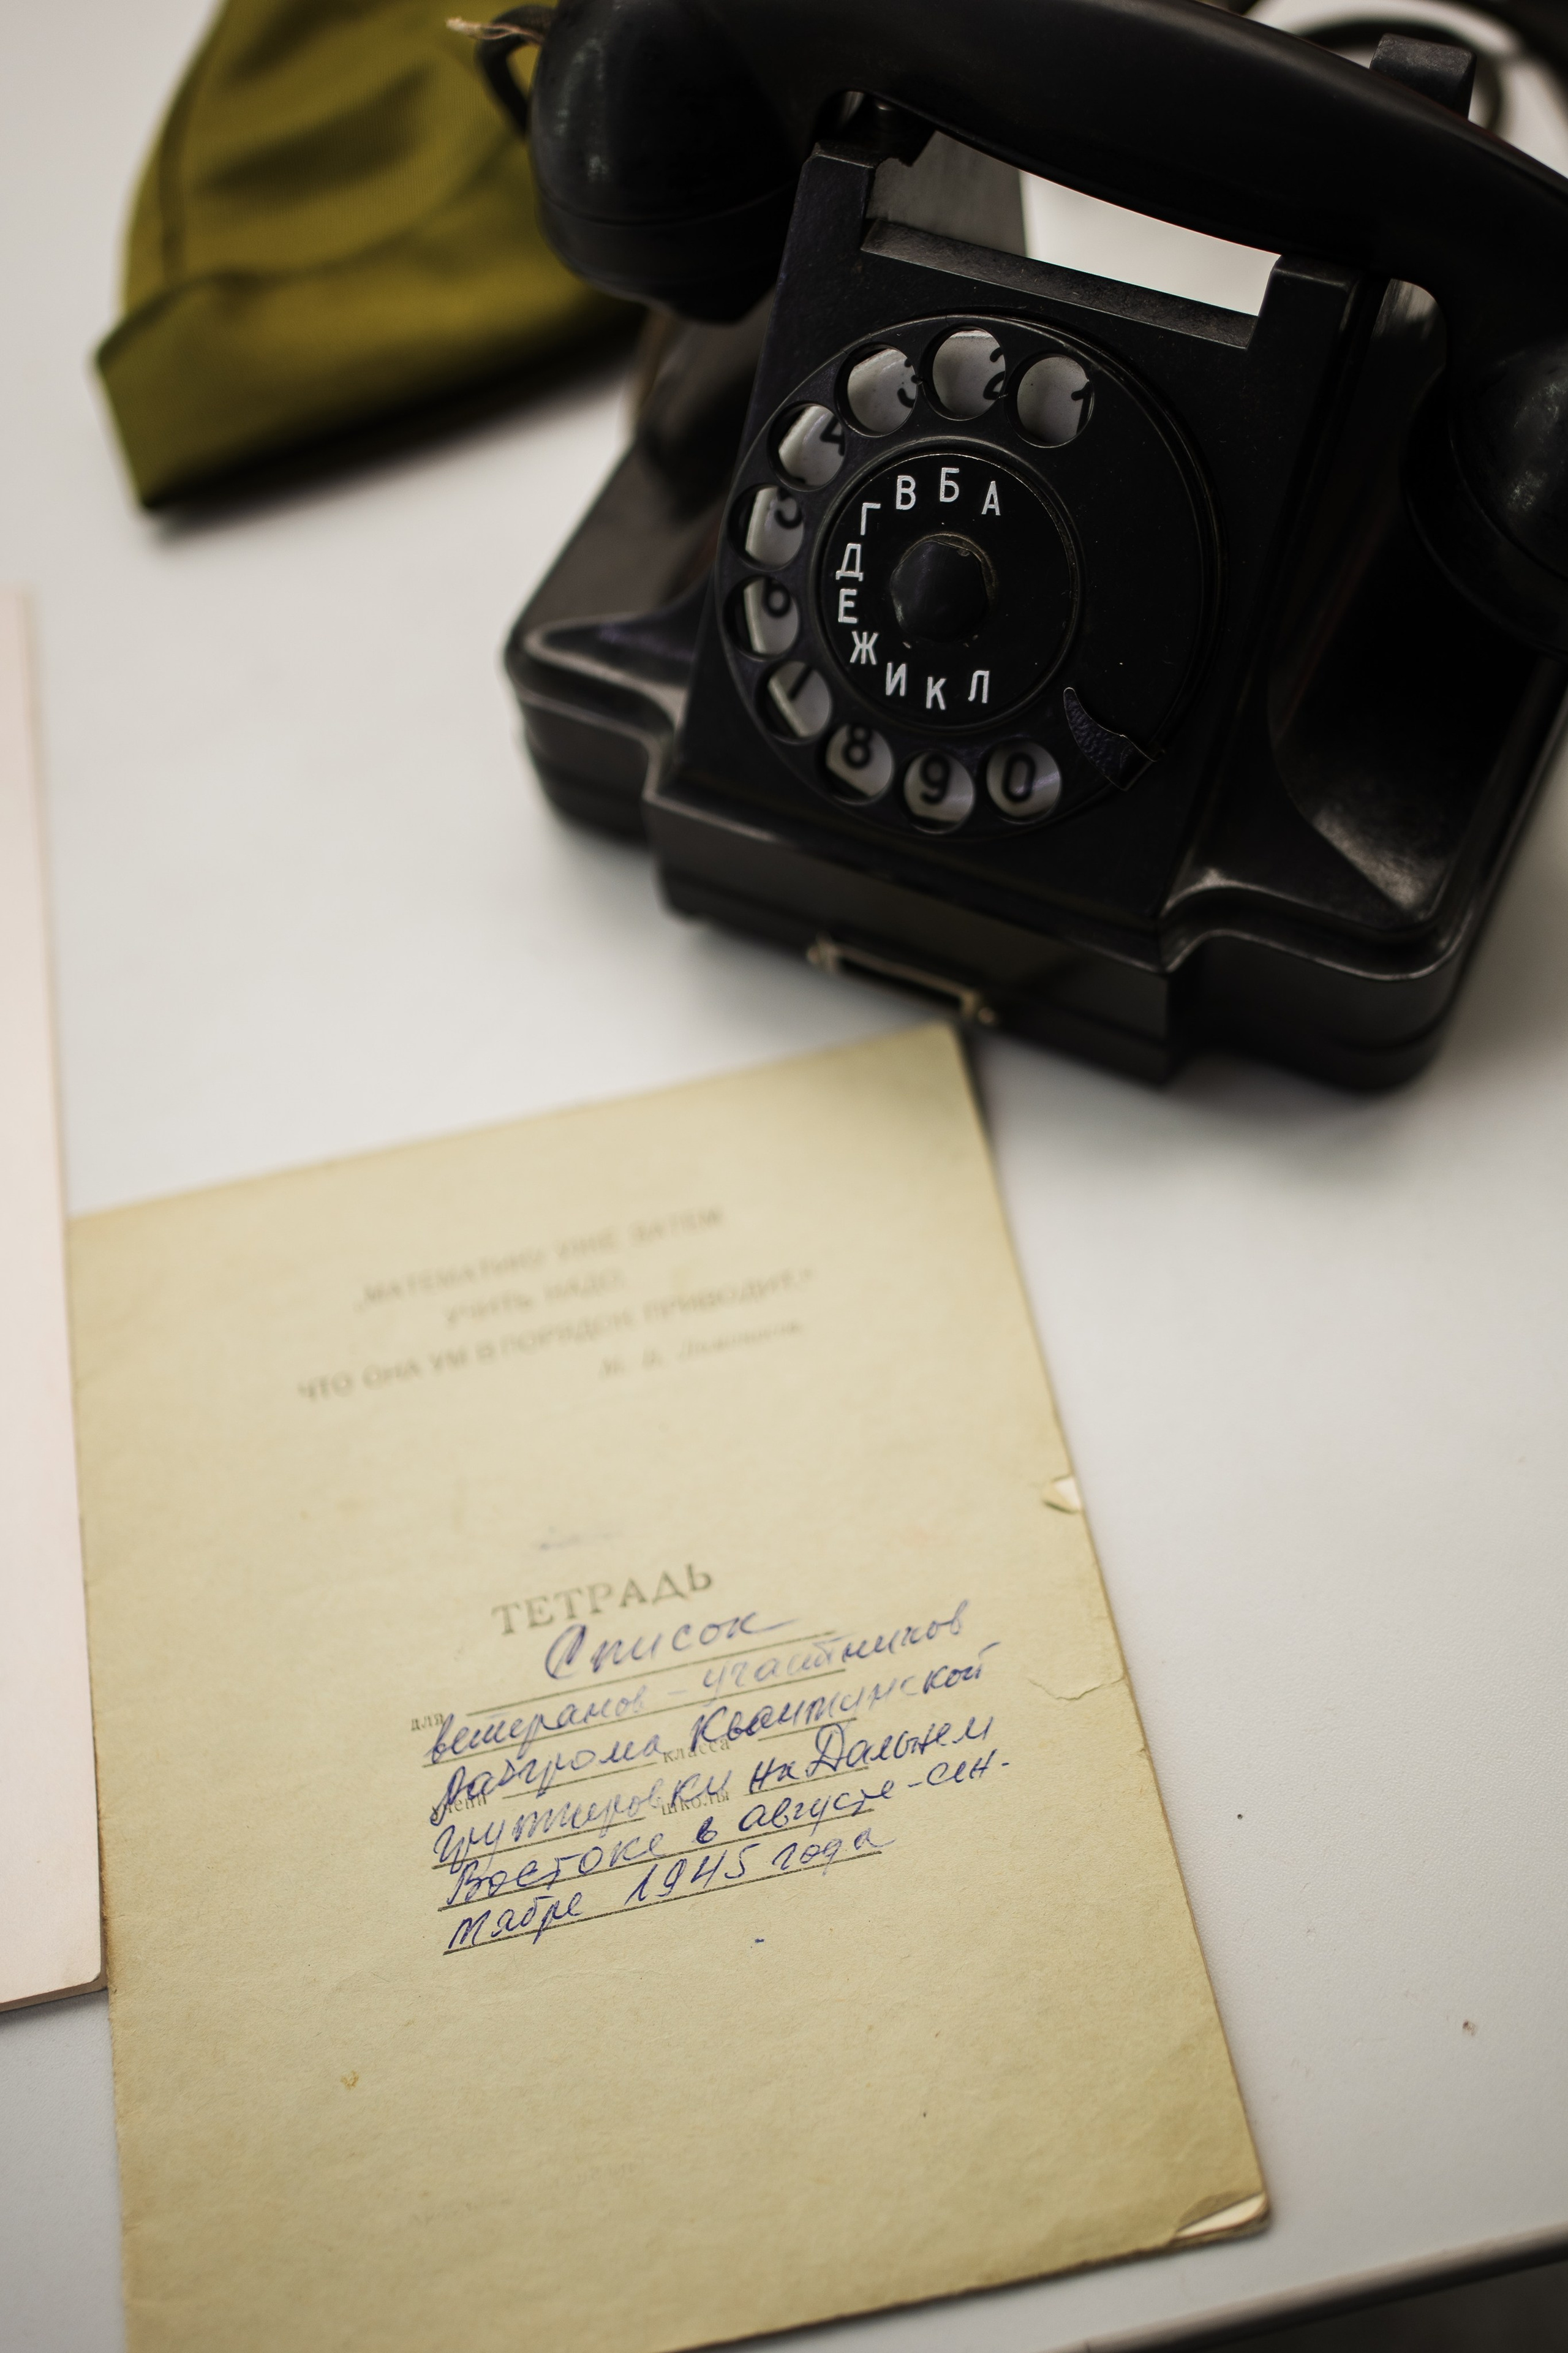 3 2 1
4
5
6
7
8 9 0
А Б В Г Д Е Ж И К Л
„МАТЕМАТИКУ УЖЕ ЗАТЕМ
УЧИТЬ НАДО,
ЧТО ОНА УМ В ПОРЯДОК ПРИВОДИТ."
М. В. Ломоносов
ТЕТРАДЬ
Список
для
ветеранов - участников
разгрома Квантунской
класса
группировки на Дальнем
школы
Востоке в августе-сен-
тябре 1945 года